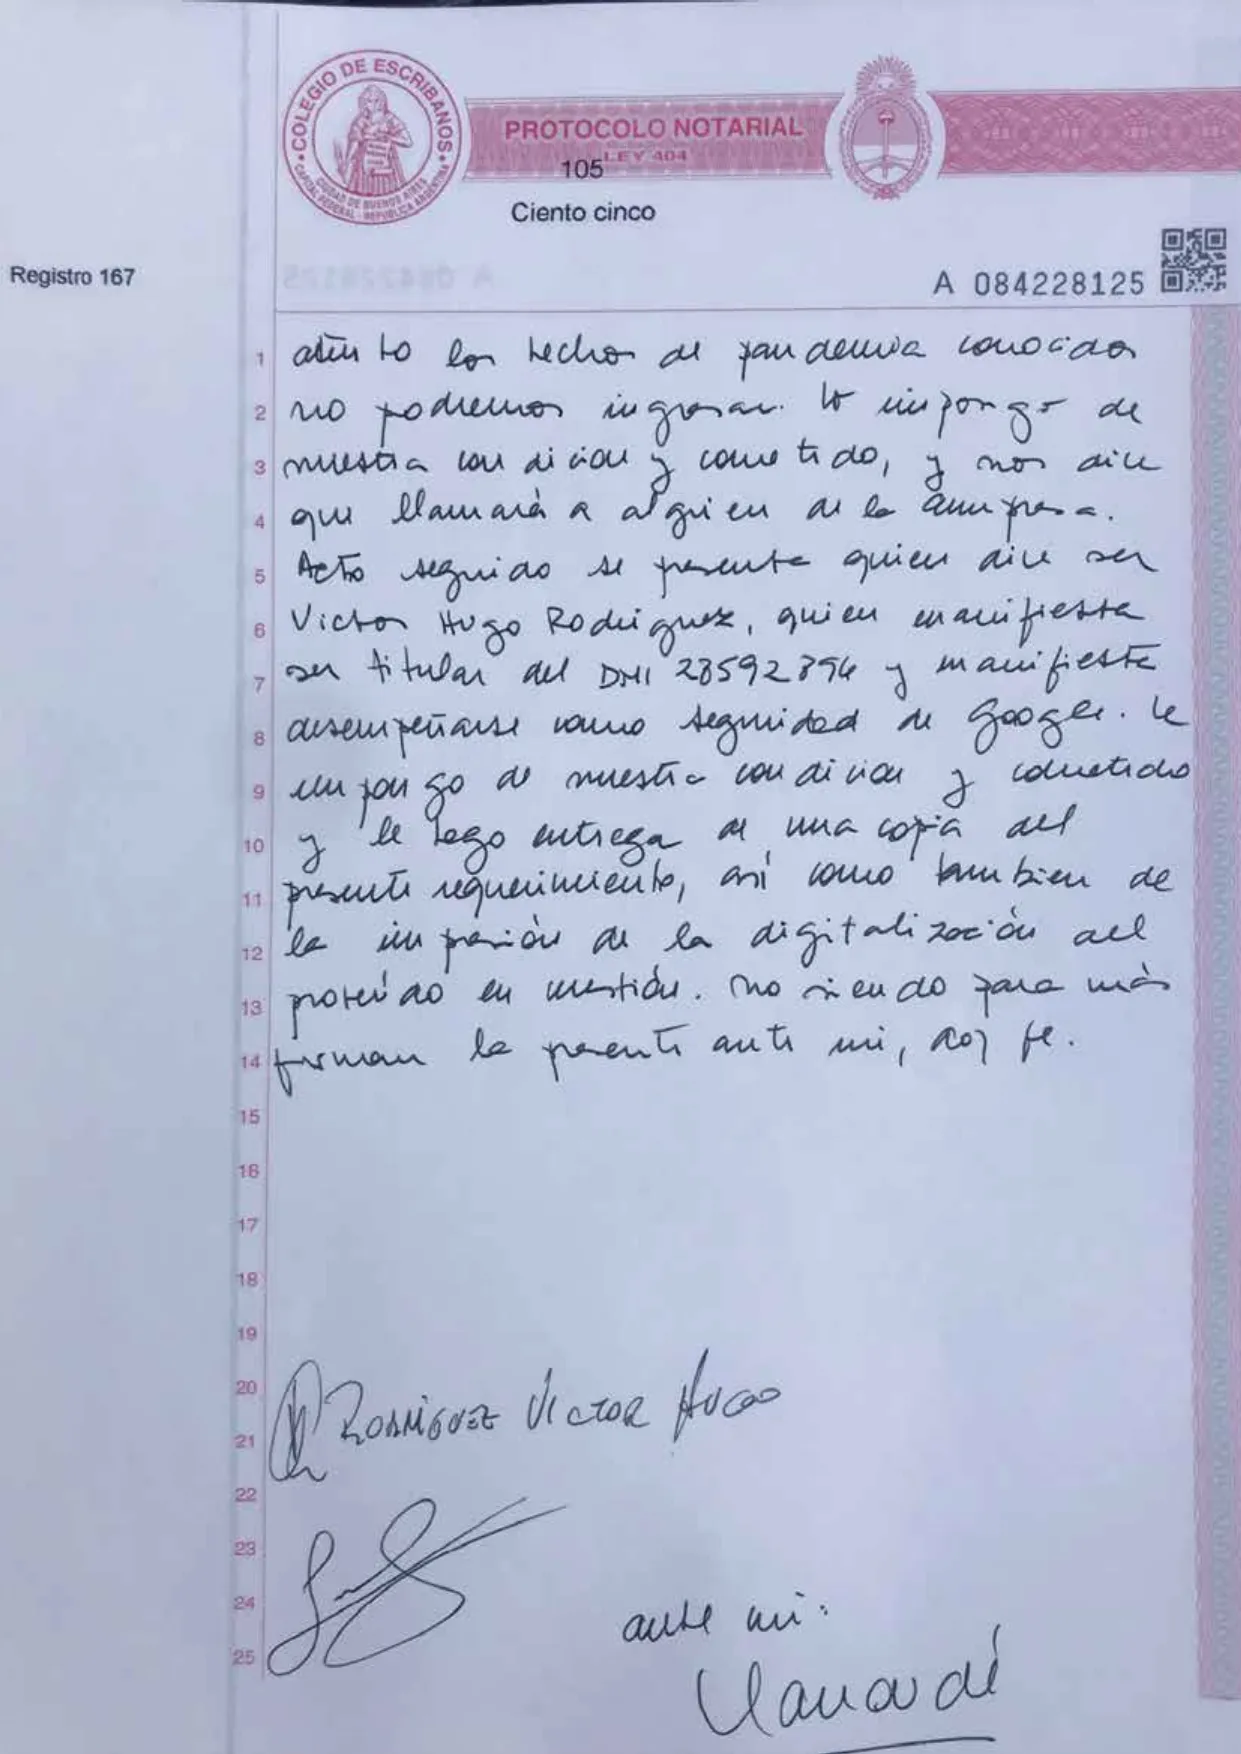 COLEGIO DE ESCRIBANOS
CIUDAD DE BUENOS AIRES
CAPITAL FEDERAL - REPUBLICA ARGENTINA
PROTOCOLO NOTARIAL
LEY 404
105
Ciento cinco
Registro 167
A 084228125
1 atento los hechos de pandemia conocidos
2 no podremos ingresar. Lo impongo de
3 nuestra condicion y cometido, y nos dice
4 que llamará a alguien de la empresa.
5 Acto seguido se presenta quien dice ser
6 Victor Hugo Rodriguez, quien manifiesta
7 ser titular del DNI y manifiesta
8 desempeñarse como seguridad de Google. Le
9 impongo de nuestra condicion y cometido
10 y le hago entrega de una copia del
11 presente requerimiento, así como tambien de
12 la impresión de la digitalización del
13 proveído en cuestión. No siendo para más
14 firman la presente ante mi, doy fe.
15
16
17
18
19
20
21 RODRIGUEZ VICTOR HUGO
22
23
24 ante mi:
25